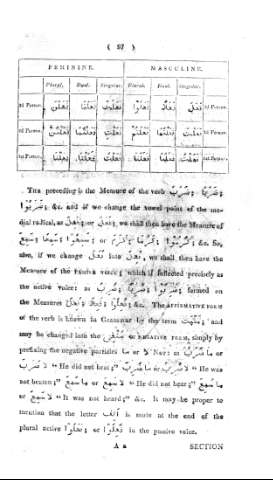 ( 37 )
FEMININE. MASCULINE.
Plural. Dual. Singular. Plural. Dual. Singular.
3d Person. فَعَلْنَ فَعَلَتَا فَعَلَتْ فَعَلُوا فَعَلَا فَعَلَ 3d Person.
2d Person. فَعَلْتُنَّ فَعَلْتُمَا فَعَلْتِ فَعَلْتُمْ فَعَلْتُمَا فَعَلْتَ 2d Person.
1st Person. فَعَلْنَا فَعَلْنَا فَعَلْتُ فَعَلْنَا فَعَلْنَا فَعَلْتُ 1st Person.
THE preceding is the Measure of the verb ضَرَبَ; ضَرَبَا;
ضَرَبُوا; &c. and if we change the vowel point of the me-
dial radical, as فَعِلَ; or فَعُلَ, we shall then have the Measure of
سَمِعَ; سَمِعَا; سَمِعُوا; or كَرُمَ; كَرُمَا; كَرُمُوا; &c. So,
also, if we change فَعَلَ into فُعِلَ, we shall then have the
Measure of the PASSIVE VOICE; which if inflected precisely as
the active voice: as ضُرِبَ; ضُرِبَا; ضُرِبُوا; formed on
the Measures فُعِلَ; فُعِلَا; فُعِلُوا; &c. The AFFIRMATIVE FORM
of the verb is known in Grammar by the term مُثْبَت; and
may be changed into the مَنْفِي or NEGATIVE FORM, simply by
prefixing the negative particles مَا or لَا Not: as مَا ضَرَبَ or
لَا ضَرَبَ "He did not beat;" مَا ضُرِبَ or لَا ضُرِبَ "He was
not beaten;" مَا سَمِعَ or لَا سَمِعَ "He did not hear;" مَا سُمِعَ
or لَا سُمِعَ "It was not heard;" &c. It may be proper to
mention that the letter أَلِف is mute at the end of the
plural active فَعَلُوا; or فُعِلُوا in the passive voice.
A a SECTION